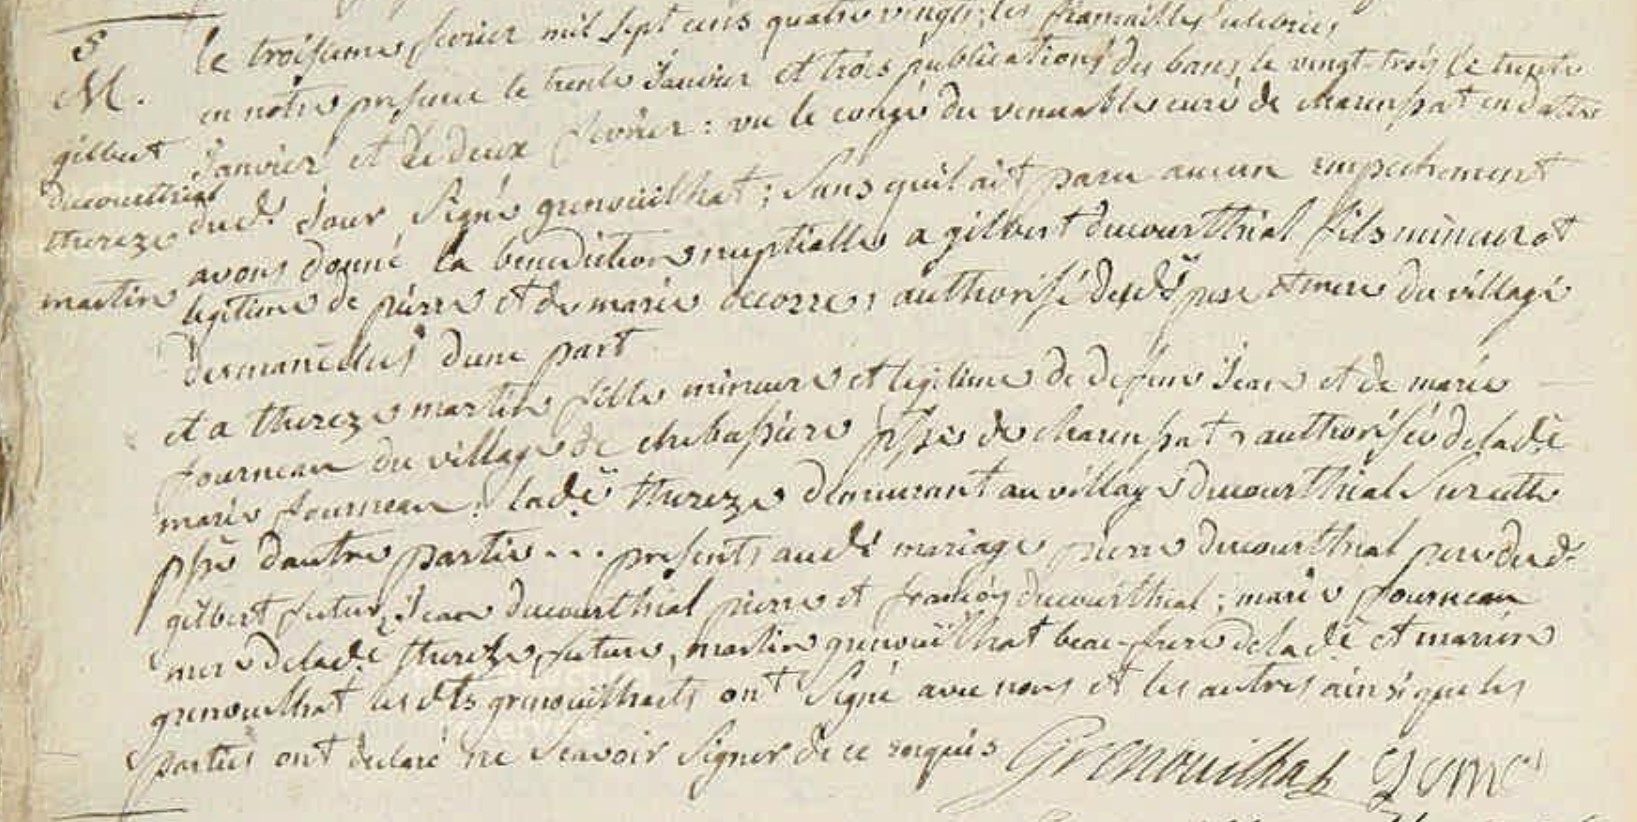 5
M.
gilbert
ducourthial
thereze
martin
le troisieme fevrier mil sept cens quatre vingt; les fiancailles celebrées
en notre presence le trente Janvier et trois publications des bans le vingt-trois le trente
Janvier et le deux fevrier : vu le congé du venerable curé de charensat en datte
dud. Jour signé grenouilhat ; sans quil ait paru aucun empechement
avons donné la benediction nuptialle a gilbert ducourthial fils mineur et
legitime de pierre et de marie authorisé desd. pere et mere du village
dune part
et a thereze martin fille mineure et legitime de defunt Jean et de marie
fourneau du village de chebassiere psse de charensat authorisée de lade
marie fourneau ; lade thereze demeurant au village ducourthial sur cette
psse dautre partie... presents audt mariage pierre ducourthial pere dud.
gilbert futur, Jean ducourthial pierre et françois ducourthial ; marie fourneau
mere delade thereze future, martin grenouilhat beau-frere delade et marien
grenouilhat lesdts grenouilhats ont signé avec nous et les autres ainsi que les
parties ont declaré ne scavoir signer de ce requis Grenouilhat